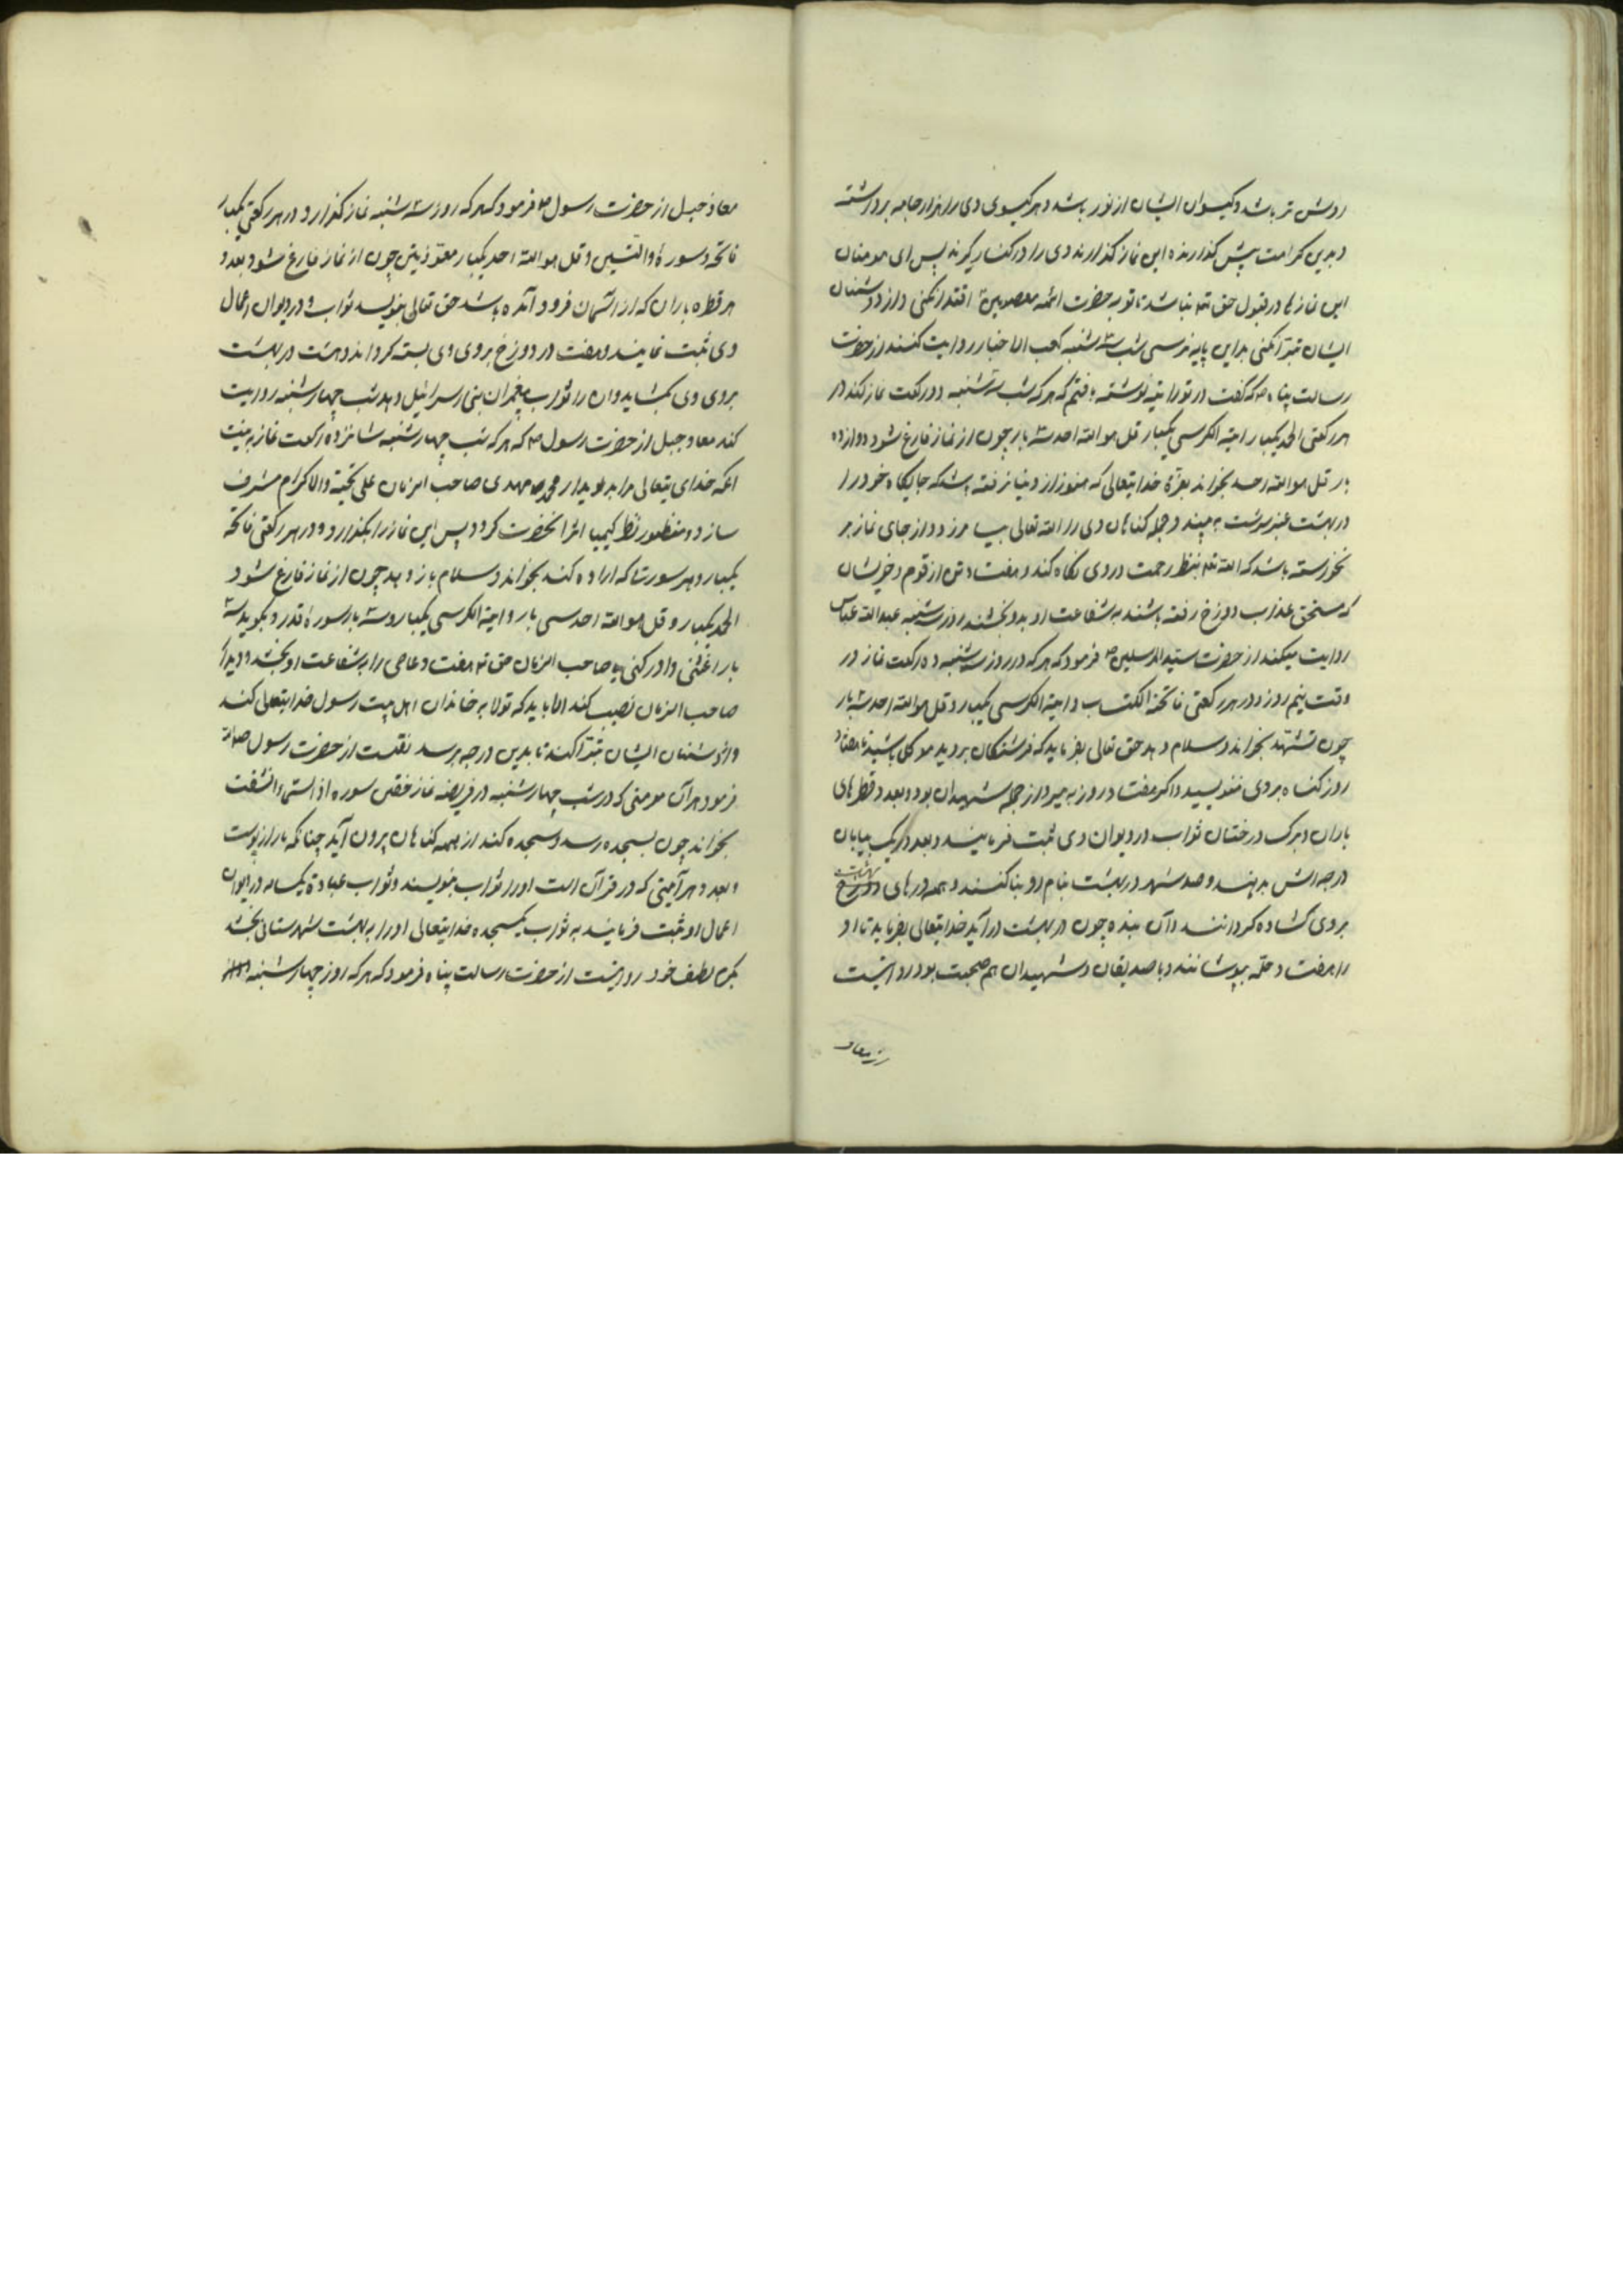 روشن تر باشد و کیسوان ایشان از نور باشد و هر کیسوی وی را هزار جامه برداشته
و بدین کرامت پیش کذارنده این نماز کذارند وی را در کنار کیرند پس ای مومنان
این نمازها در قبول حق تع نباشد تا تو به حضرت ائمه معصومین اقتدا نکنی و از دشمنان
ایشان تبرا نکنی بداین پایه نرسی شب سه شنبه کعب الاخبار روایت کنند از حضرت
رسالت پناه ص که کفت در توراتیه نوشته یافتم که هر که شب سه شنبه دو رکعت نماز کند در
هر رکعتی الحمد یکبار و ایته الکرسی یکبار قل هو الله احد سه بار چون از نماز فارغ شود دوازده
بار قل هو الله احد بخواند بعزة خدایتعالی که هنوز از دنیا نرفته باشد که جایکاه خود را
در بهشت عنبر سرشت به بیند و جمله کناهان وی را الله تعالی بیامرزد و از جای نماز بر
نخواسته باشد که الله تع بنظر رحمت در وی نکاه کند و هفتاد تن از قوم و خویشان
که مستحق عذاب دوزخ رفته باشند به شفاعت او بدو بخشند روز سه شنبه عبدالله عباس
روایت میکند از حضرت سید المرسلین ص فرمود که هر که در روز سه شنبه ده رکعت نماز در
وقت نیم روز و در هر رکعتی فاتحة الکتاب و ایته الکرسی یکبار و قل هو الله احد سه بار
چون تشهد بخواند و سلام دهد حق تعالی بفرماید که فرشتکان بروید موکل باشید تا هفتاد
روز کناه بر وی ننویسید و اکر هفتاد روز به میرد از جمله شهیدان بود و بعدد قطرهای
باران و برک درختان ثواب در دیوان وی ثبت فرمایند و بعدد ریک بیابان
درجه اش بدهند و صد شهر در بهشت بنام او بنا کنند و همه درهای دوزخ
بر وی کشاده کردانند و آن بنده چون در بهشت درآید خدایتعالی بفرماید تا او
را هفتاد حله بپوشانند و با صدیقان و شهیدان هم صحبت بود روایتست
از معاد
معاذ جبل از حضرت رسول ص فرمود که هر که روز سه شنبه نماز کذارد و در هر رکعتی یکبار
فاتحه و سورة والتین و قل هو الله احد یکبار معوذتین چون از نماز فارغ شود بعدد
هر قطره باران که از آسمان فرود آمده باشد حق تعالی بنویسد ثواب و در دیوان اعمال
وی ثبت نمایند و هفت در دوزخ بروی وی بسته کرداند و هشت در بهشت
بروی وی بکشاید و ان را ثواب پیغمبران بنی اسرائیل دهد شب چهارشنبه روایت
کند معاد جبل از حضرت رسول ص که هر که شب چهارشنبه شانزده رکعت نماز به نیت
انکه خدای تعالی مرا بدیدار محمد مهدی صاحب الزمان علی تحیته والاکرام مشرف
سازد و منظور نظر کیمیا اثر انحضرت کردد پس این نماز را بکذارد و در هر رکعتی فاتحه
یکبار و هر سورتا که اراده کند بخواند و سلام باز دهد چون از نماز فارغ شود
الحمد یکبار و قل هو الله احد سی بار و ایته الکرسی یکبار و سه بار سوره قدر و بکوید سه
بار اغثنی و ادرکنی یا صاحب الزمان حق تع هفتاد عاصی را به شفاعت او بخشد و دیدار
صاحب الزمان نصیب کند الا باید که تولا به خاندان اهل بیت رسول خدایتعالی کند
و از دشمنان ایشان تبرا کند تا بدین درجه برسد نقلست از حضرت رسول صلی الله
فرمود هر آن مومنی که در شب چهارشنبه در فریضه نماز خفتن سوره اذا السماء انشقت
بخواند چون بسجده رسد و سجده کند از همه کناهان برون آید چنانکه مار از پوست
و بعدد هر آیتی که در قرآن است او را ثواب بنویسند و ثواب عبادة یکساله در دیوان
اعمال او ثبت فرمایند به ثواب یکسجده خدایتعالی او را به بهشت شهرستانی بخشد
بکمال لطف خود روایتست از حضرت رسالت پناه فرمود که هر که روز چهارشنبه